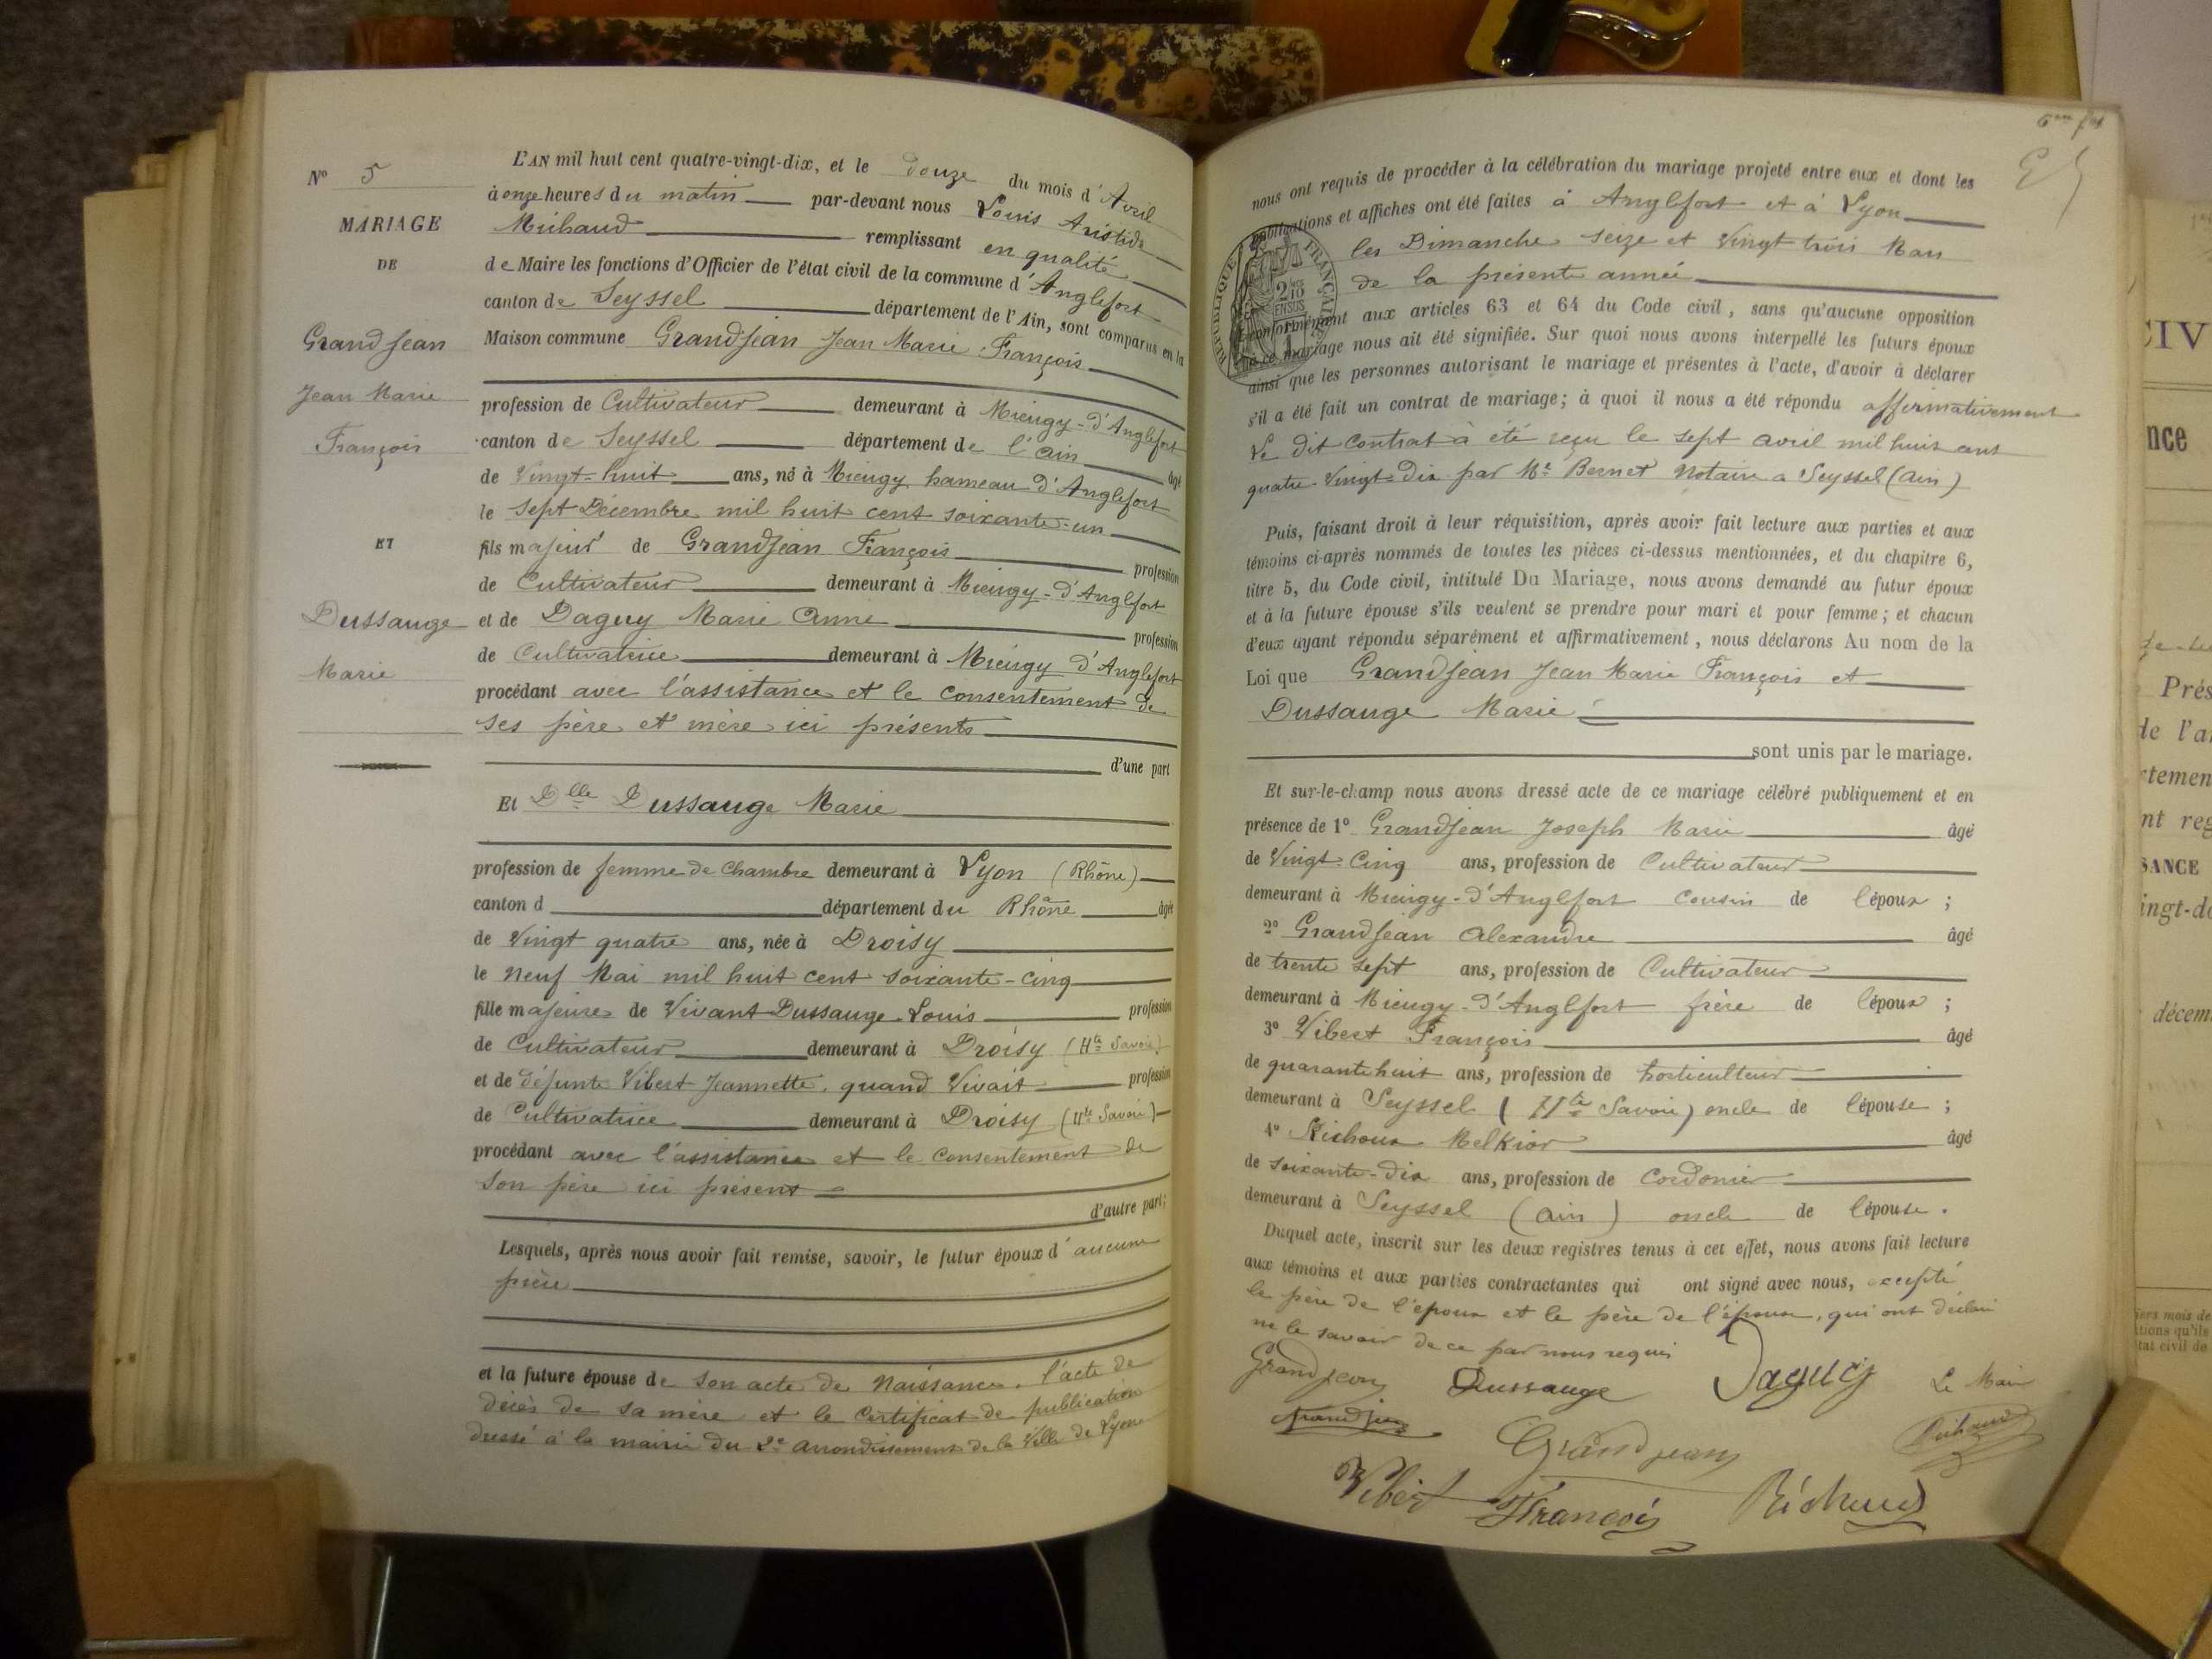 N° 5
MARIAGE
DE
Grandjean
Jean Marie
François
ET
Dussauge
Marie
L'AN mil huit cent quatre-vingt-dix, et le douze du mois d'Avril
à onze heures du matin par-devant nous Louis Aristide
Michaud remplissant en qualité
de Maire les fonctions d'Officier de l'état civil de la commune d'Anglefort
canton de Seyssel département de l'Ain, sont comparus en la
Maison commune Grandjean Jean Marie François
profession de Cultivateur demeurant à Mieugy-d'Anglefort
canton de Seyssel département de l'ain âgé
de Vingt-huit ans, né à Mieugy hameau d'Anglefort
le sept Décembre mil huit cent soixante-un
fils majeur de Grandjean François profession
de Cultivateur demeurant à Mieugy-d'Anglefort
et de Daguy Marie Anne profession
de Cultivatrice demeurant à Mieugy d'Anglefort
procédant avec l'assistance et le consentement de
ses père et mère ici présents
d'une part
Et Dlle Dussauge Marie
profession de femme de chambre demeurant à Lyon (Rhône)
canton d département du Rhône âgée
de Vingt quatre ans, née à Droisy
le neuf Mai mil huit cent soixante-cinq
fille majeure de Vivant Dussauge Louis profession
de Cultivateur demeurant à Droisy (Hte Savoie)
et de défunte Vibert Jeannette, quand Vivait profession
de Cultivatrice demeurant à Droisy (Hte Savoie)
procédant avec l'assistance et le consentement de
son père ici présent
d'autre part;
Lesquels, après nous avoir fait remise, savoir, le futur époux d'aucune
pièce
et la future épouse de son acte de Naissance, l'acte de
décès de sa mère et le Certificat de publication
dressé à la mairie du 2e arrondissement de la Ville de Lyon
nous ont requis de procéder à la célébration du mariage projeté entre eux et dont les
publications et affiches ont été faites à Anglefort et à Lyon
les Dimanche seize et Vingt trois Mars
de la présente année
RÉPUBLIQUE FRANÇAISE
conformément aux articles 63 et 64 du Code civil, sans qu'aucune opposition
à ce mariage nous ait été signifiée. Sur quoi nous avons interpellé les futurs époux
ainsi que les personnes autorisant le mariage et présentes à l'acte, d'avoir à déclarer
s'il a été fait un contrat de mariage; à quoi il nous a été répondu affermativement
Le dit contrat à été reçu le sept avril mil huit cent
quatre-Vingt-dix par Me Bernet Notaire a Seyssel (ain)
Puis, faisant droit à leur réquisition, après avoir fait lecture aux parties et aux
témoins ci-après nommés de toutes les pièces ci-dessus mentionnées, et du chapitre 6,
titre 5, du Code civil, intitulé Du Mariage, nous avons demandé au futur époux
et à la future épouse s'ils veulent se prendre pour mari et pour femme; et chacun
d'eux ayant répondu séparément et affirmativement, nous déclarons Au nom de la
Loi que Grandjean Jean Marie François et
Dussauge Marie
sont unis par le mariage.
Et sur-le-champ nous avons dressé acte de ce mariage célébré publiquement et en
présence de 1° Grandjean Joseph Marie âgé
de Vingt-cinq ans, profession de Cultivateur
demeurant à Mieugy-d'Anglefort cousin de l'époux;
2° Grandjean Alexandre âgé
de trente sept ans, profession de Cultivateur
demeurant à Mieugy-d'Anglefort frère de l'époux;
3° Vibert François âgé
de quarante huit ans, profession de horticulteur
demeurant à Seyssel (Hte Savoie) oncle de l'épouse;
4° Richoux Melkior âgé
de soixante-dix ans, profession de Cordonier
demeurant à Seyssel (ain) oncle de l'épouse.
Duquel acte, inscrit sur les deux registres tenus à cet effet, nous avons fait lecture
aux témoins et aux parties contractantes qui ont signé avec nous, excepté
le père de l'époux et le père de l'épouse, qui ont déclaré
ne le savoir de ce par nous requis
Grandjean Dussauge Daguey Le Maire
Grandjean Grandjean Michaud
Vibert François Richoux
CIV
nce
Prés
de l'a
rtemen
nt reg
SANCE
ingt-d
décem